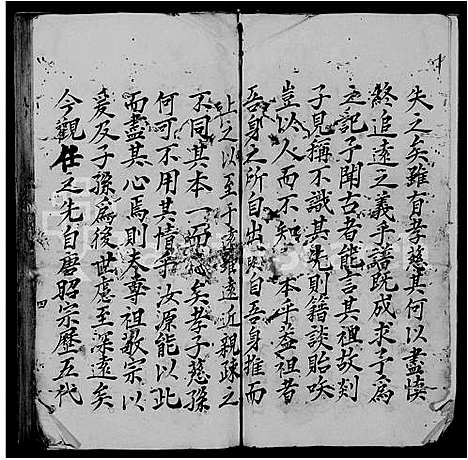 失之矣雖有孝慈其何以盡慎
終追遠之義乎譜既成求予為
之記予聞古者能言其祖故剡
子見稱不識其先則籍談貽咲
豈以人而不知本乎蓋祖者
吾身之所自出既自吾身推而
上之以至于遠雖遠近親疎之
不同其本一而已矣孝子慈孫
何可不用其情乎汝源能以此
而盡其心焉則夫尊祖敬宗以
爰及子孫為後世慮至深遠矣
今觀任之先自唐昭宗歷五代